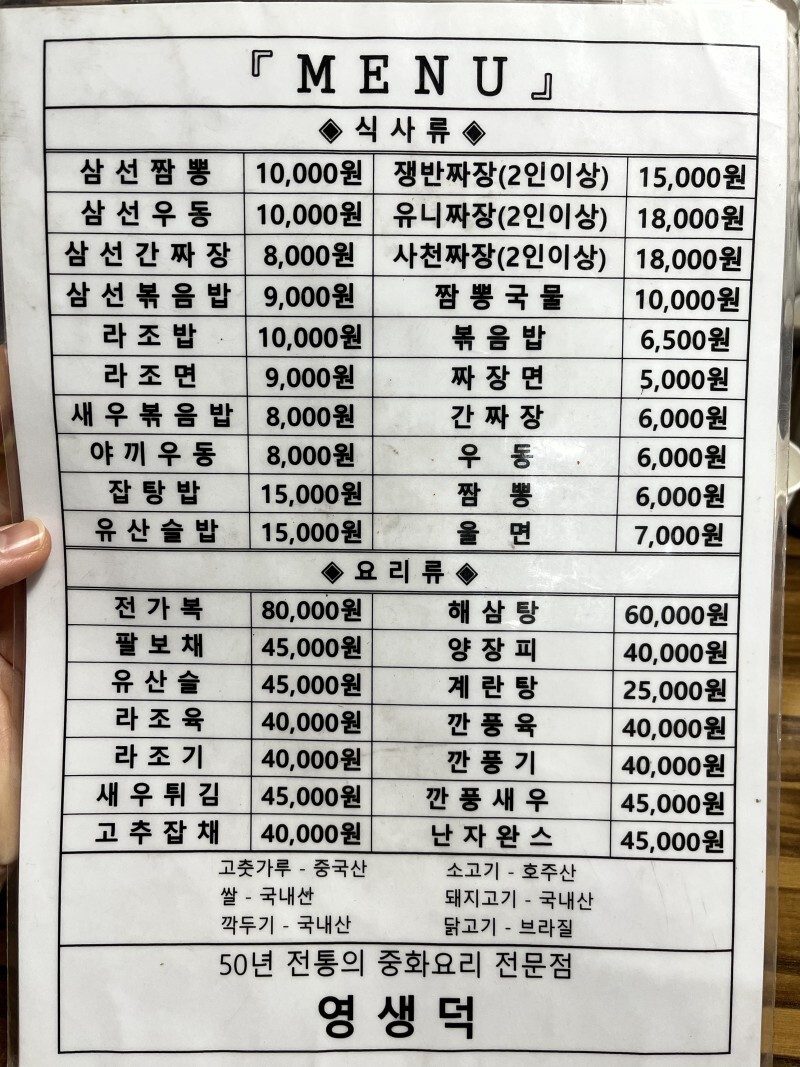 『MENU』
◈ 식사류 ◈
삼선짬뽕 10,000원 쟁반짜장(2인이상) 15,000원
삼선우동 10,000원 유니짜장(2인이상) 18,000원
삼선간짜장 8,000원 사천짜장(2인이상) 18,000원
삼선볶음밥 9,000원 짬뽕국물 10,000원
라조밥 10,000원 볶음밥 6,500원
라조면 9,000원 짜장면 5,000원
새우볶음밥 8,000원 간짜장 6,000원
야끼우동 8,000원 우동 6,000원
잡탕밥 15,000원 짬뽕 6,000원
유산슬밥 15,000원 울면 7,000원
◈ 요리류 ◈
전가복 80,000원 해삼탕 60,000원
팔보채 45,000원 양장피 40,000원
유산슬 45,000원 계란탕 25,000원
라조육 40,000원 깐풍육 40,000원
라조기 40,000원 깐풍기 40,000원
새우튀김 45,000원 깐풍새우 45,000원
고추잡채 40,000원 난자완스 45,000원
고춧가루 - 중국산 소고기 - 호주산
쌀 - 국내산 돼지고기 - 국내산
깍두기 - 국내산 닭고기 - 브라질
50년 전통의 중화요리 전문점
영생덕